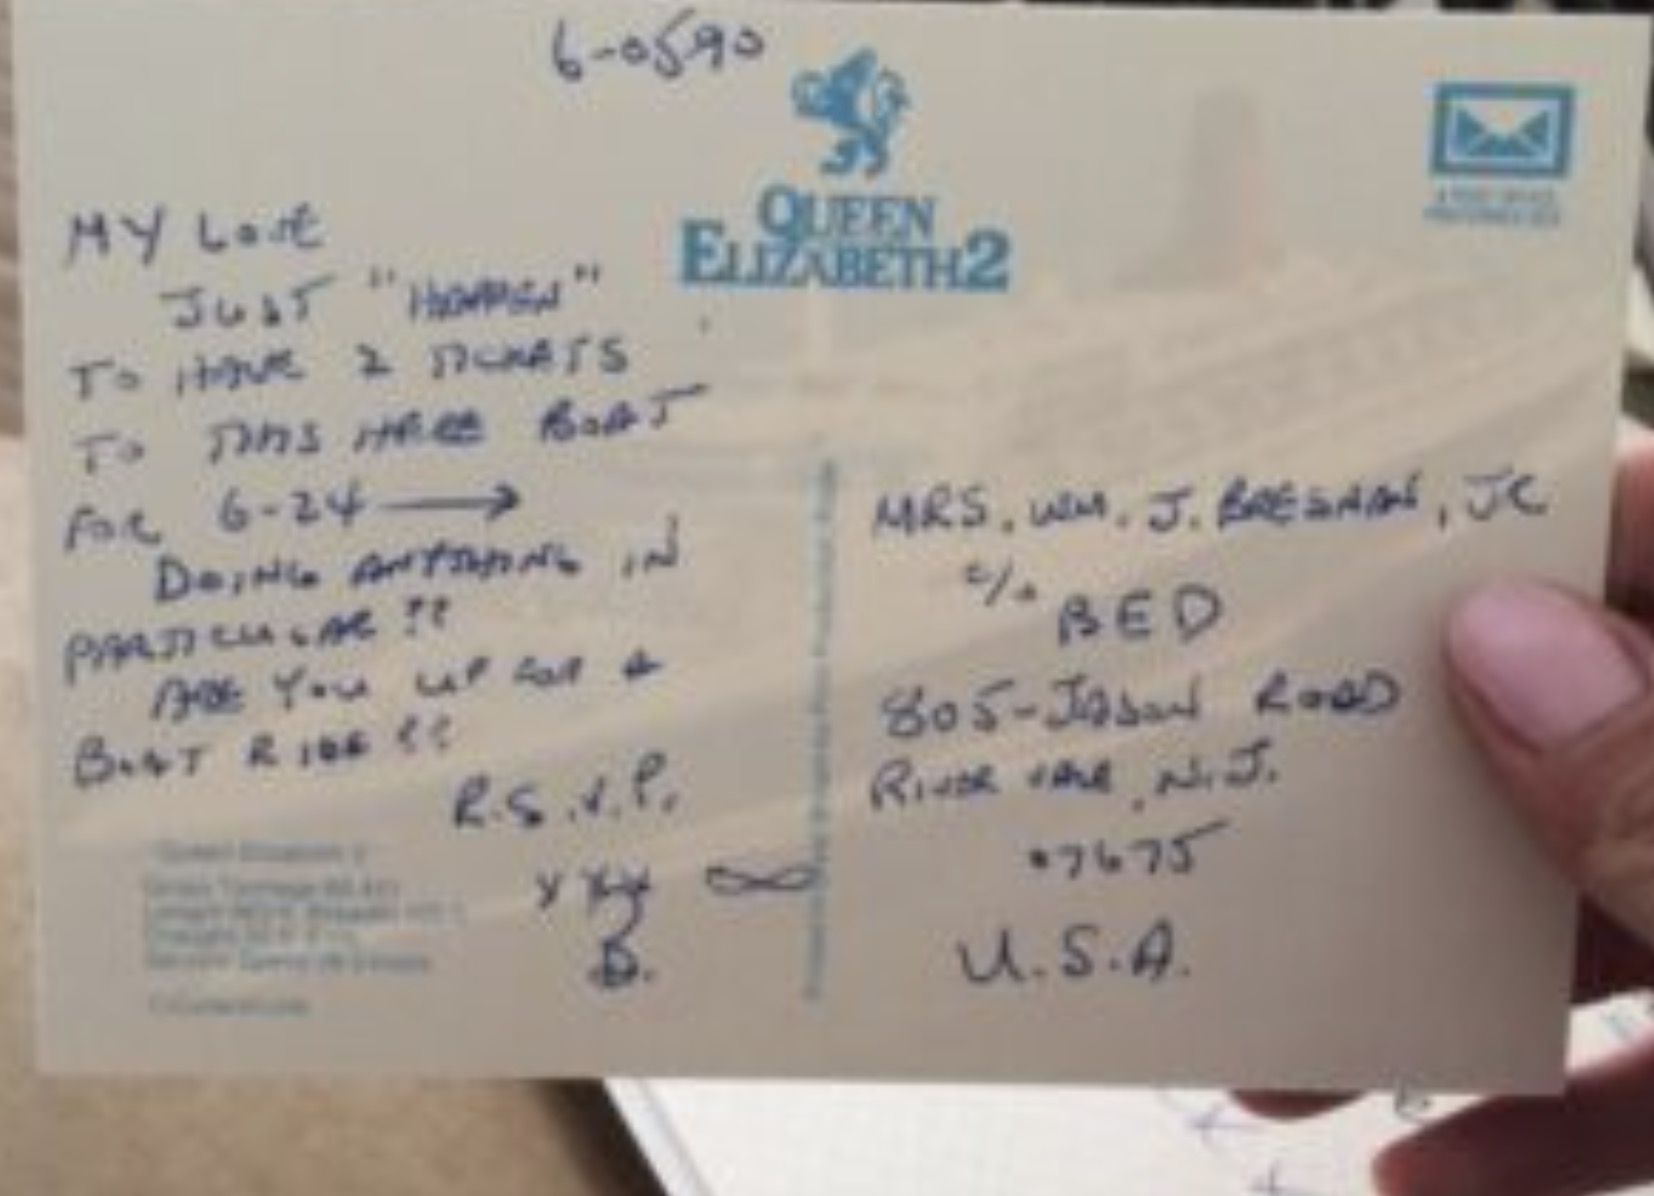 6-0590
QUEEN
ELIZABETH 2
MY LOVE
JUST "HAPPEN"
TO HAVE 2 TICKETS
TO THIS HERE BOAT
FOR 6-24 →
DOING ANYTHING IN
PARTICULAR ??
ARE YOU UP FOR A
BOAT RIDE ??
R.S.V.P.
XXX ∞
B.
MRS. WM. J. BRESNAN, JR
c/o BED
805-JASON ROAD
RIVER VALE, N.J.
07675
U.S.A.
Queen Elizabeth 2